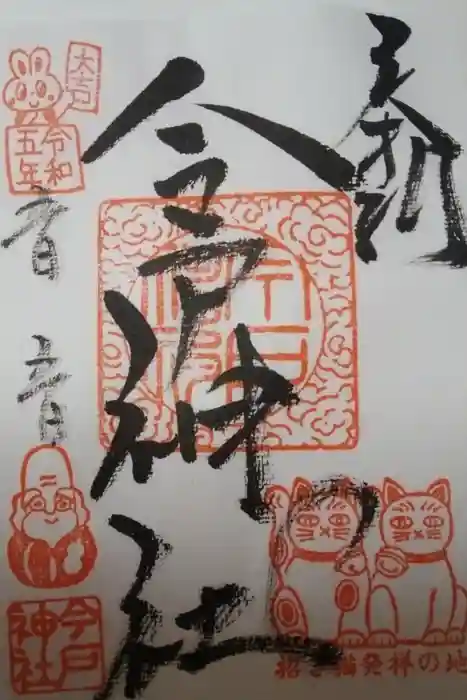 奉拝
今戸神社
招き猫発祥の地
大吉
令和
五年
今戸
神社